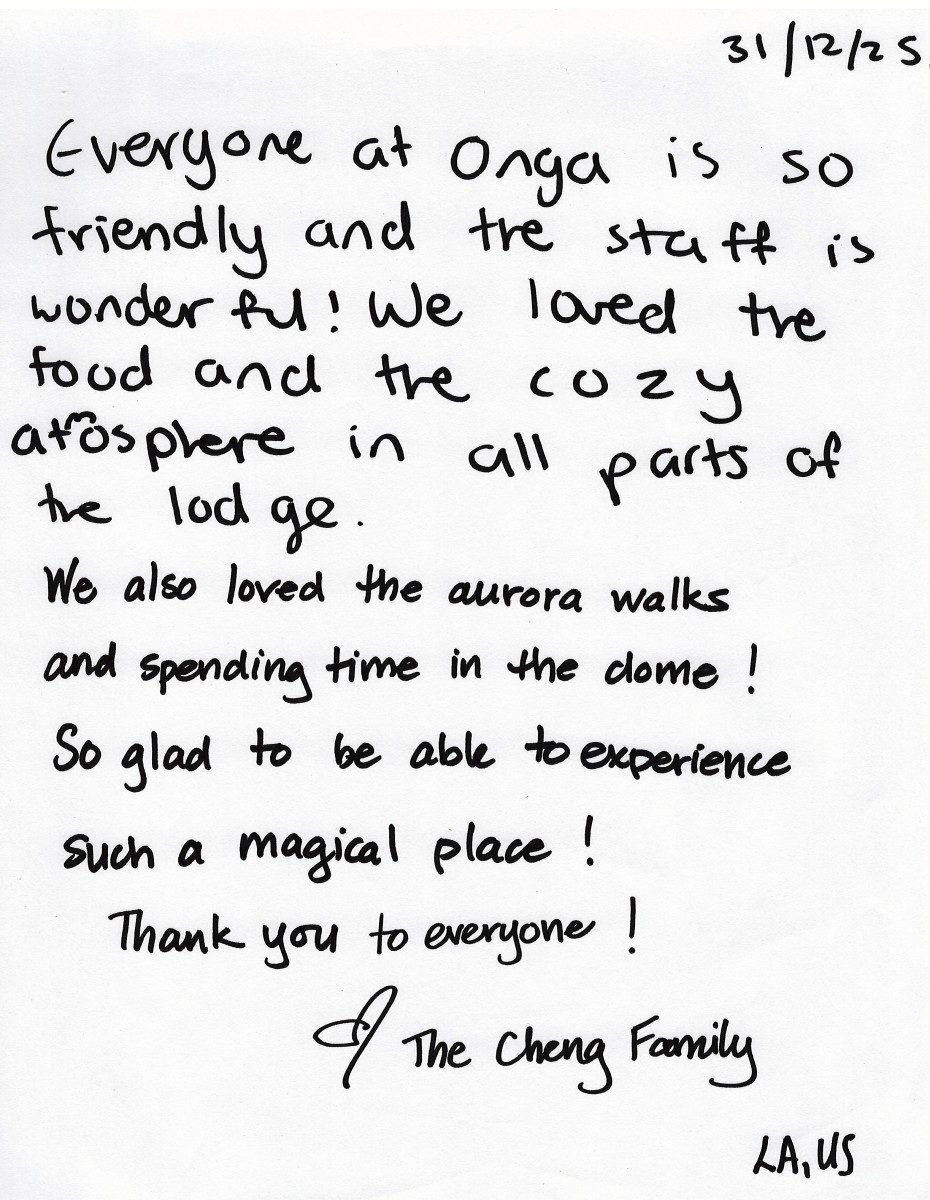 31/12/25
Everyone at Onga is so
friendly and the staff is
wonderful! We loved the
food and the cozy
atmosphere in all parts of
the lodge.
We also loved the aurora walks
and spending time in the dome!
So glad to be able to experience
such a magical place!
Thank you to everyone!
The Cheng Family
LA, US